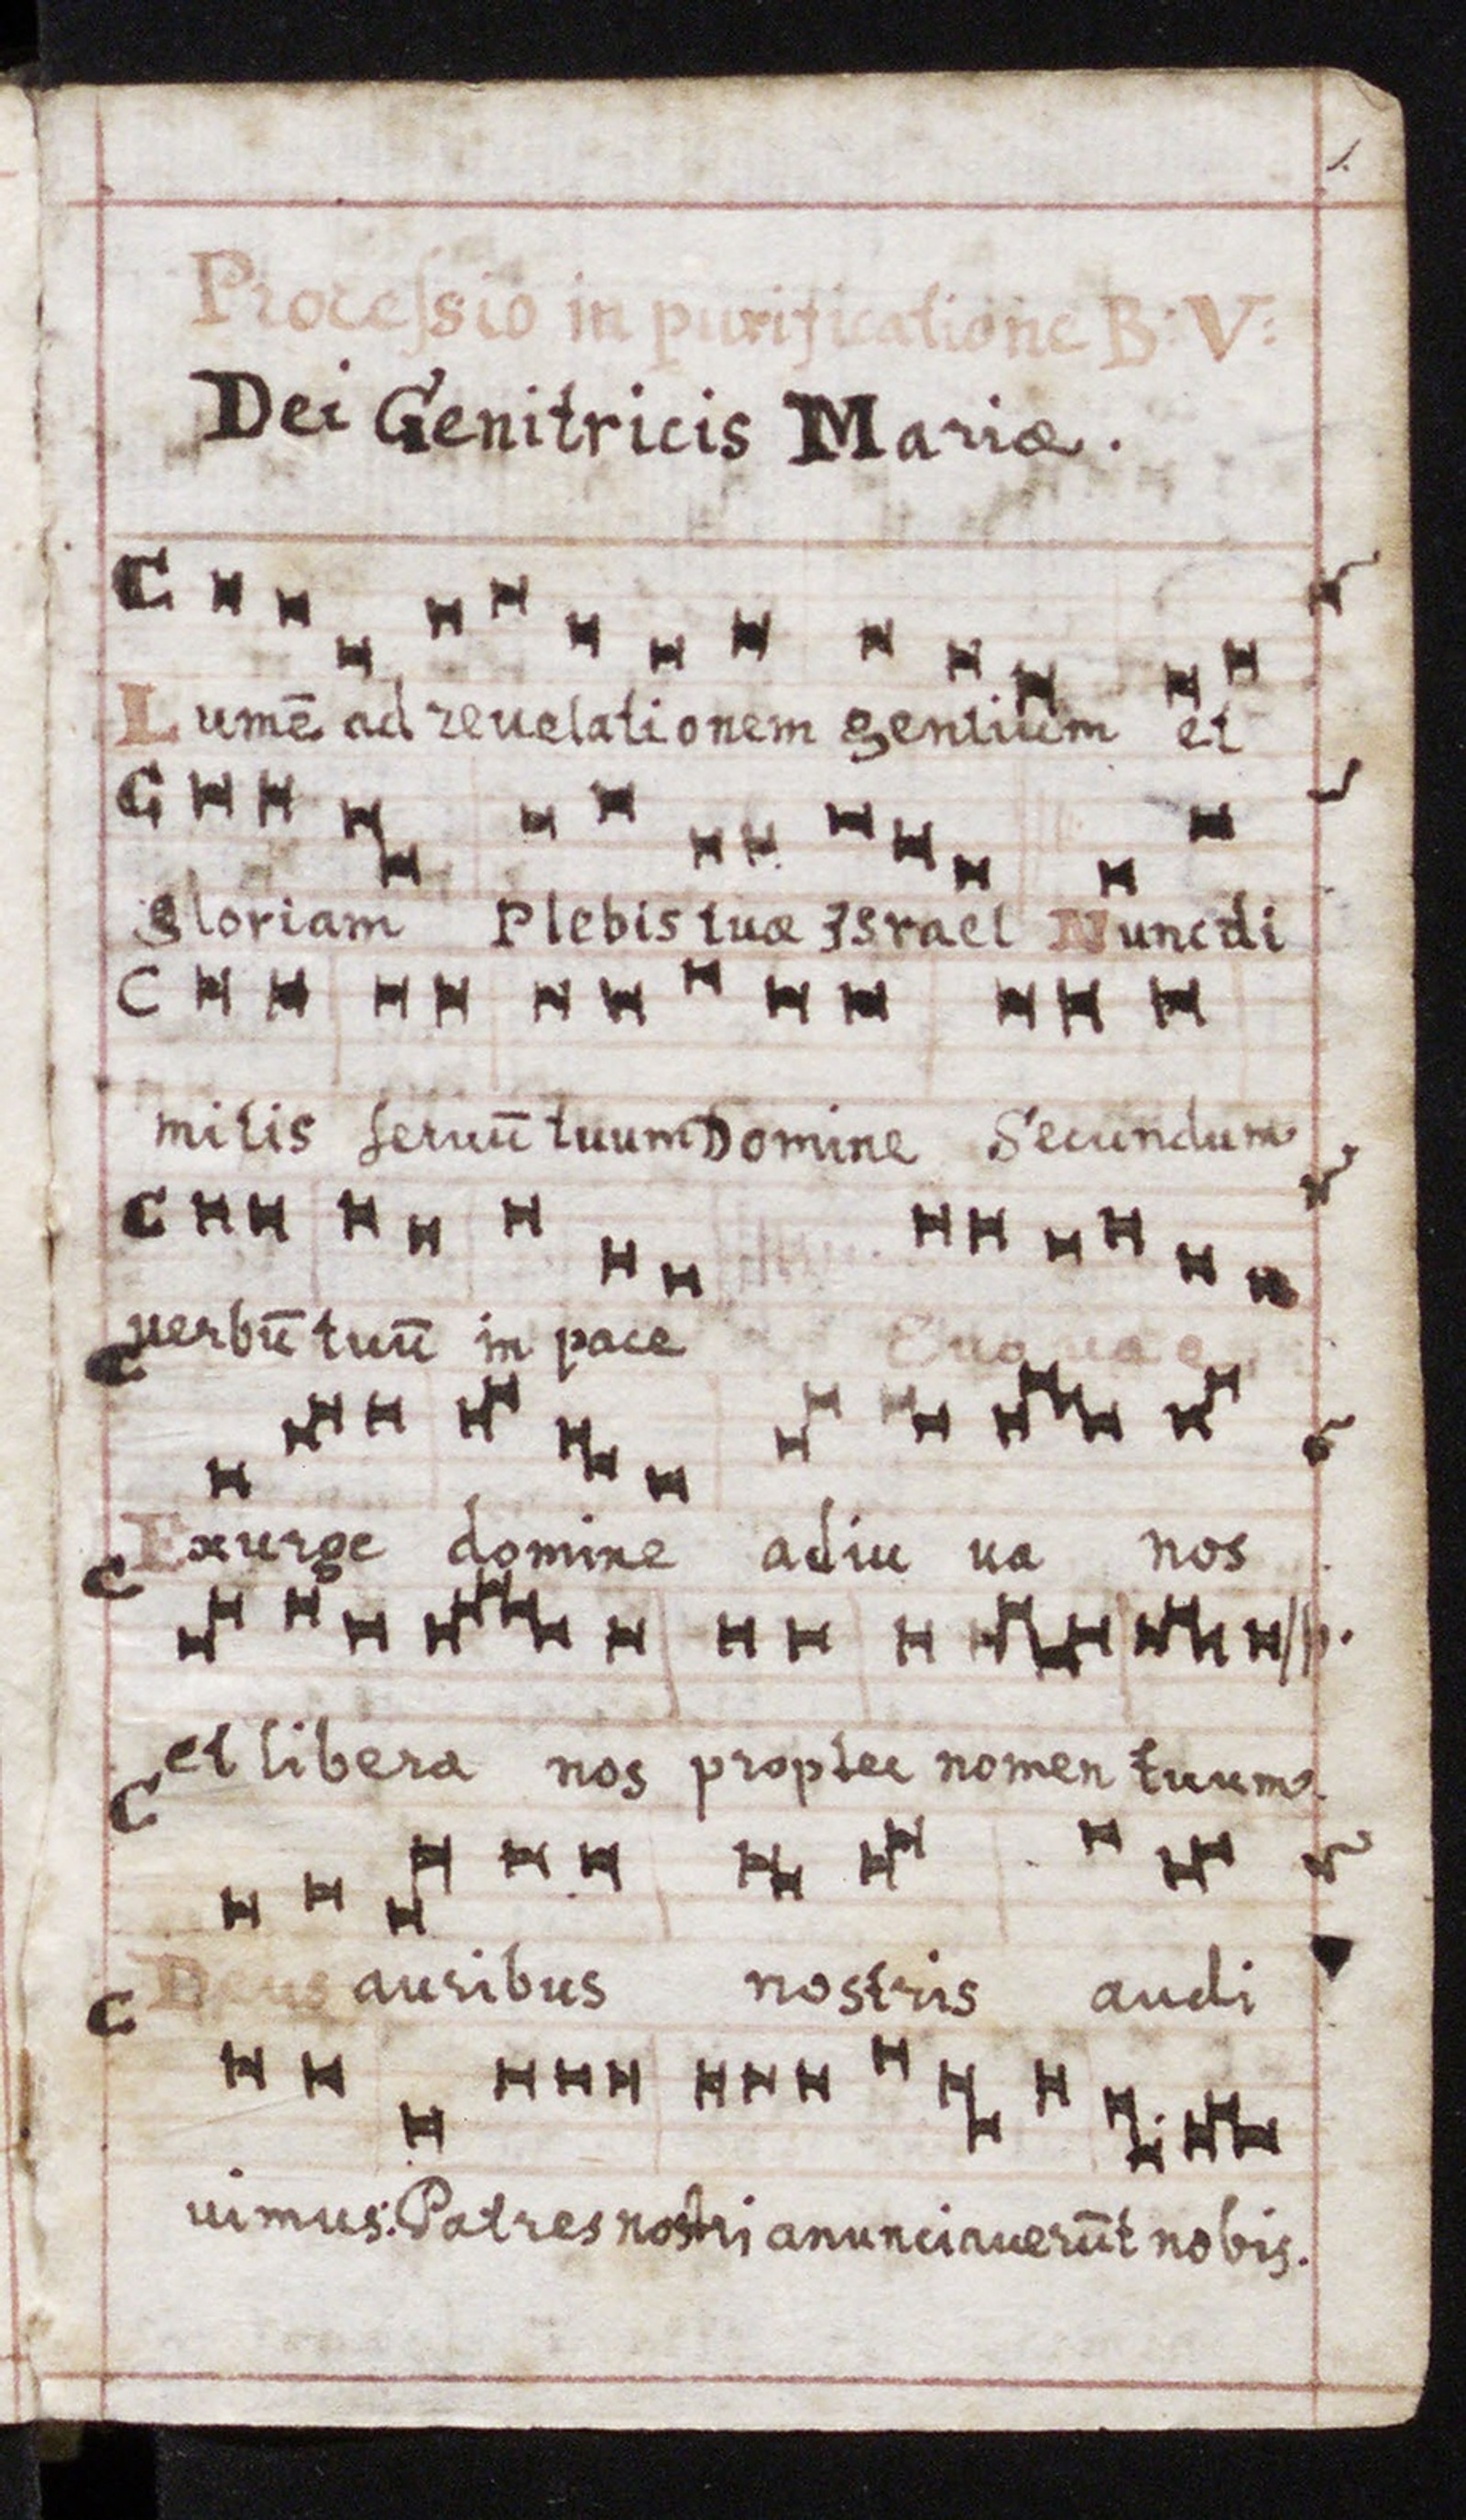 1.
Proceſsio in purificatione B: V:
Dei Genitricis Mariæ.
Lumē ad reuelationem gentium et
gloriam Plebis tuæ Israel Nunc di
mitis seruū tuum Domine Secundum
uerbū tuū in pace Euouae
Exurge domine adiu ua nos
et libera nos propter nomen tuum.
Deus auribus nostris audi
uimus: Patres nostri anunciauerūt nobis.